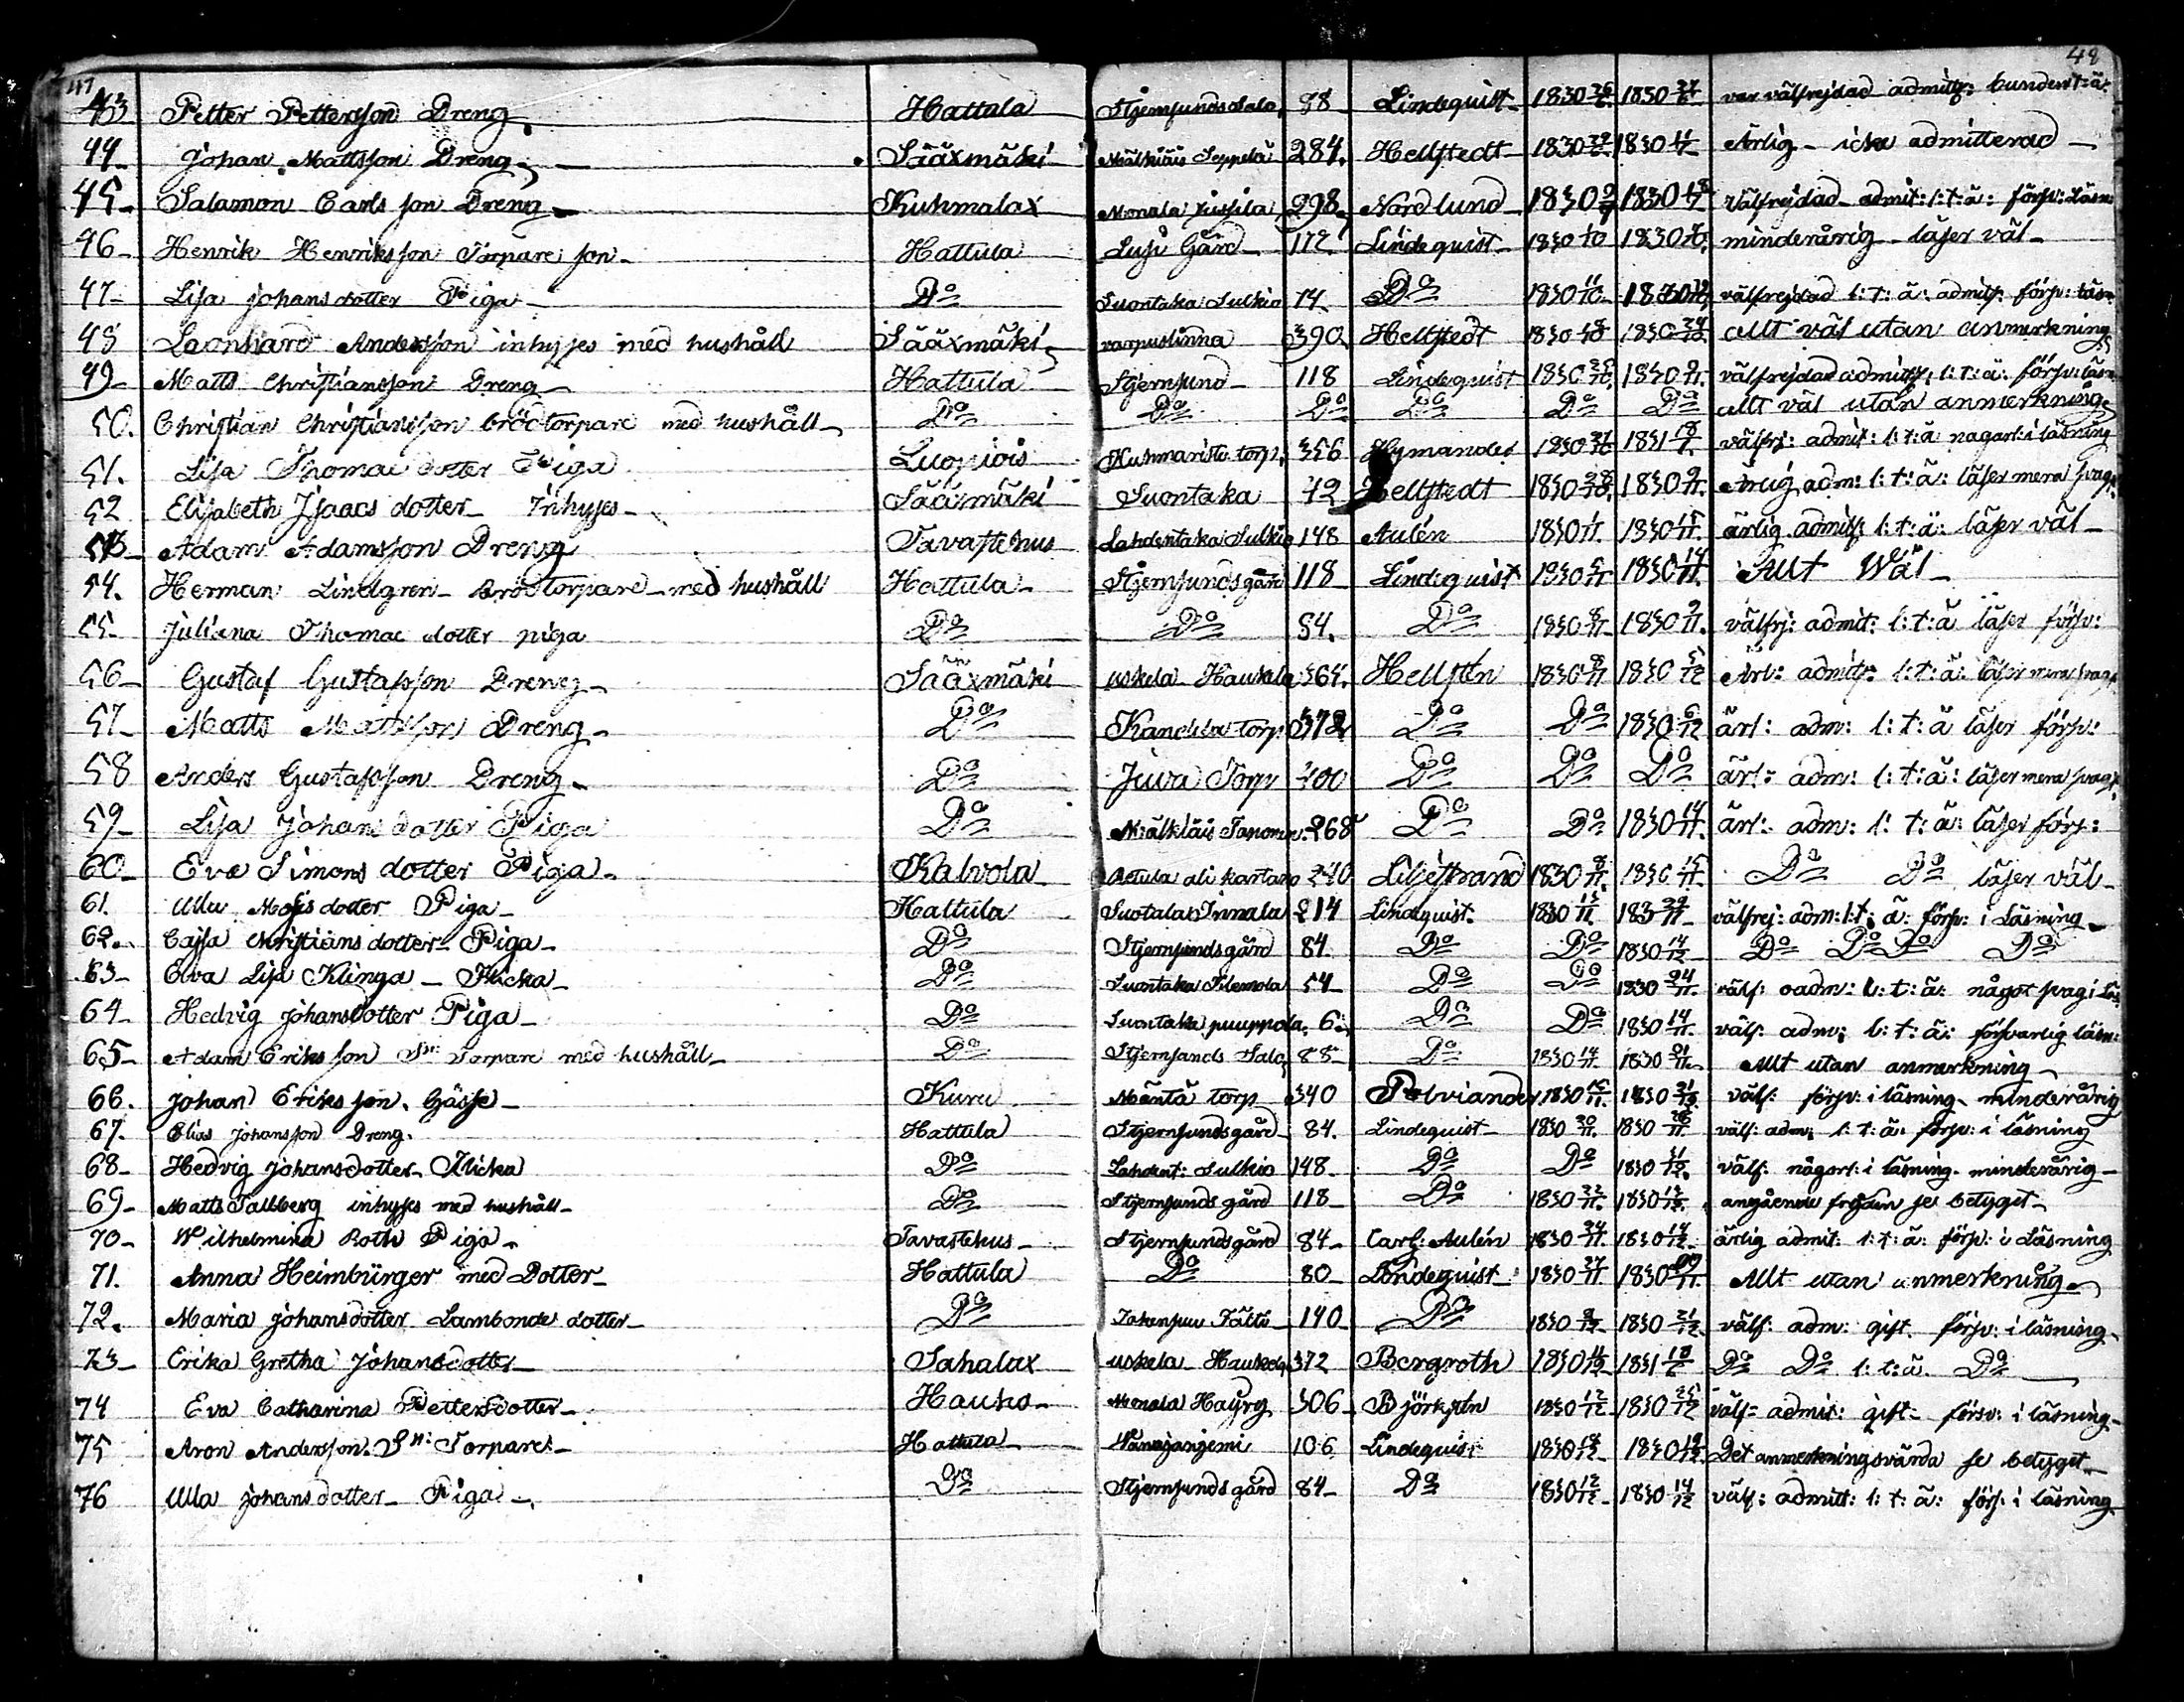 47 48
43 Petter Pettersson Dreng Hattula Stjernsunds Salo 88 Lindequist 1830 1830 var välfrejdad admitt:
44 Johan Mattsson Dreng Sääxmäki Mälkiäis Seppälä 284. Hellstedt 1830 1830 Ärlig - icke admitterad
45 Salamon Carlsson Dreng Kuhmalax Monala Jussila 298 Nordlund 1830 1830 välfrejdad admit: l: t: ä: försv: läsn:
46 Henrik Henriksson Torpare son Hattula Lusi Gård 112 Lindequist 1830 1830 minderårig läser väl
47 Lisa Johansdotter Piga Do Suontaka Sulkio 14. Do 1830 1830 välfrejdad l: t: ä: admitt: försv: läsn
48 Leonhard Andersson inhyses med hushåll Sääxmäki varpuslinna 390 Hellstedt 1830 1830 allt väl utan anmerkning
49 Matts Christiansson Dreng Hattula Stjernsund 118 Lindequist 1830 1830 välfrejdad admitt: l: t: ä: försv: läsn
50. Christian Christiansson brödtorpare med hushåll Do Do Do Do Do Do allt väl utan anmerkning
51. Lisa Thomae dotter Piga Luopiois Kuhmaristo torp. 356 Hymander 1830 1831 18/1 välfrj: admit: l: t: ä någorl: i läsning
52 Elisabeth Isaacs dotter Inhyses Sääxmäki Suontaka 42 Hellstedt 1830 1830 9/11. Ärlig adm: l: t: ä: läser mera svagt
53 Adam Adamsson Dreng Tavastehus Lahdentaka Sulkio 148 Aulén 1830 1830 ärlig admitt: l: t: ä: läser väl
54. Herman Lindgren brödtorpare med hushåll Hattula Stjernsunds gård 118 Lindequist 1830 1830 14/11. Allt Wäl
55 Juliana Thomae dotter piga Do Do 84. Do 1830 8/11 1830 9/11. välfrj: admit: l: t: ä läser försv:
56 Gustaf Gustafsson Dreng Sääxmäki uskela Haukala 364. Hellstén 1830 8/11 1830 5/12 Ärl: admitt: l: t: ä: läser mera svagt
57 Matts Mattsson Dreng Do Kandila torp 372 Do Do 1830 6/12 ärl: adm: l: t: ä läser försv:
58 Anders Gustafsson Dreng Do Juva Torp 400 Do Do Do ärl: adm: l: t: ä: läser mera svagt
59 Lisa Johans dotter Piga Do Mälkiäis 268 Do Do 1830 14/11. ärl: adm: l: t: ä: läser försv:
60 Eva Simons dotter Piga Kalvola ali kartano 240 Liljestrand 1830 8/11. 1830 15/11. Do Do läser väl
61. Ulla Mosis dotter Piga Hattula Suotala Innala 214 Lindequist 1830 183 välfrej: adm: l: t: ä: försv: i läsning
62. Cajsa Christians dotter Piga Do Stjernsunds gård 84 Do Do 1830 14/12 Do Do Do Do
63 Eva Lisa Klinga Flicka Do Suontaka Filemola 54 Do Do 1830 24/11. välf: oadm: l: t: ä: något svag i läs
64 Hedvig Johansdotter Piga Do Suontaka puuppola 6. Do Do 1830 14/11. välf: adm: l: t: ä: försvarlig läsn:
65 Adam Eriksson Sn: Torpare med hushåll Do Stjernsunds Salo 88 Do 1830 14/11 1830 21/11. Allt utan anmerkning
66. Johan Eriksson Gåsse Kuru Mäntä torp 340 Polviander 1830 1830 välf: försv: i läsning minderårig
67. Elias Johansson Dreng. Hattula Stjernsunds gård 84. Lindequist 1830 20/11. 1830 välf: adm: l: t: ä: försv: i läsning
68 Hedvig Johansdotter Flicka Do Lahdent: Sulkio 148 Do Do 1830 välf: någorl: i läsning minderårig
69 Matts Tallberg inhyses med hushåll Do Stjernsunds gård 118 Do 1830 22/11. 1830 angående frejden se betyget
70 Wilhelmina Roth Piga Tavastehus Stjernsunds gård 84 Carl: Aulén 1830 24/11. 1830 14/12 ärlig admit: l: t: ä: försv: i läsning
71. Anna Heimbürger med Dotter Hattula Do 80 Lindequist 1830 27/11 1830 Allt utan anmerkning
72. Maria Johansdotter Lambonde dotter Do 140 Do 1830 1830 21/12. välf: adm: gift. försv: i läsning
73 Erika Gretha Johansdotter Sahalax uskela Haukola 372 Bergroth 1830 1831 Do Do l: t: ä. Do
74 Eva Catharina Pettersdotter Hauho Monala Häyry 306 Björksten 1830 12/12 1830 25/12 välf: admit: gift försv: i läsning
75 Aron Andersson Sn: Torpare Hattula Vänajanjemi 106 Lindequist 1830 1830 Det anmerkningsvärda se betyget
76 Ulla Johansdotter Piga Do Stjernsunds gård 84 Do 1830 12/12 1830 14/12 välf: admitt: l: t: ä: försv: i läsning